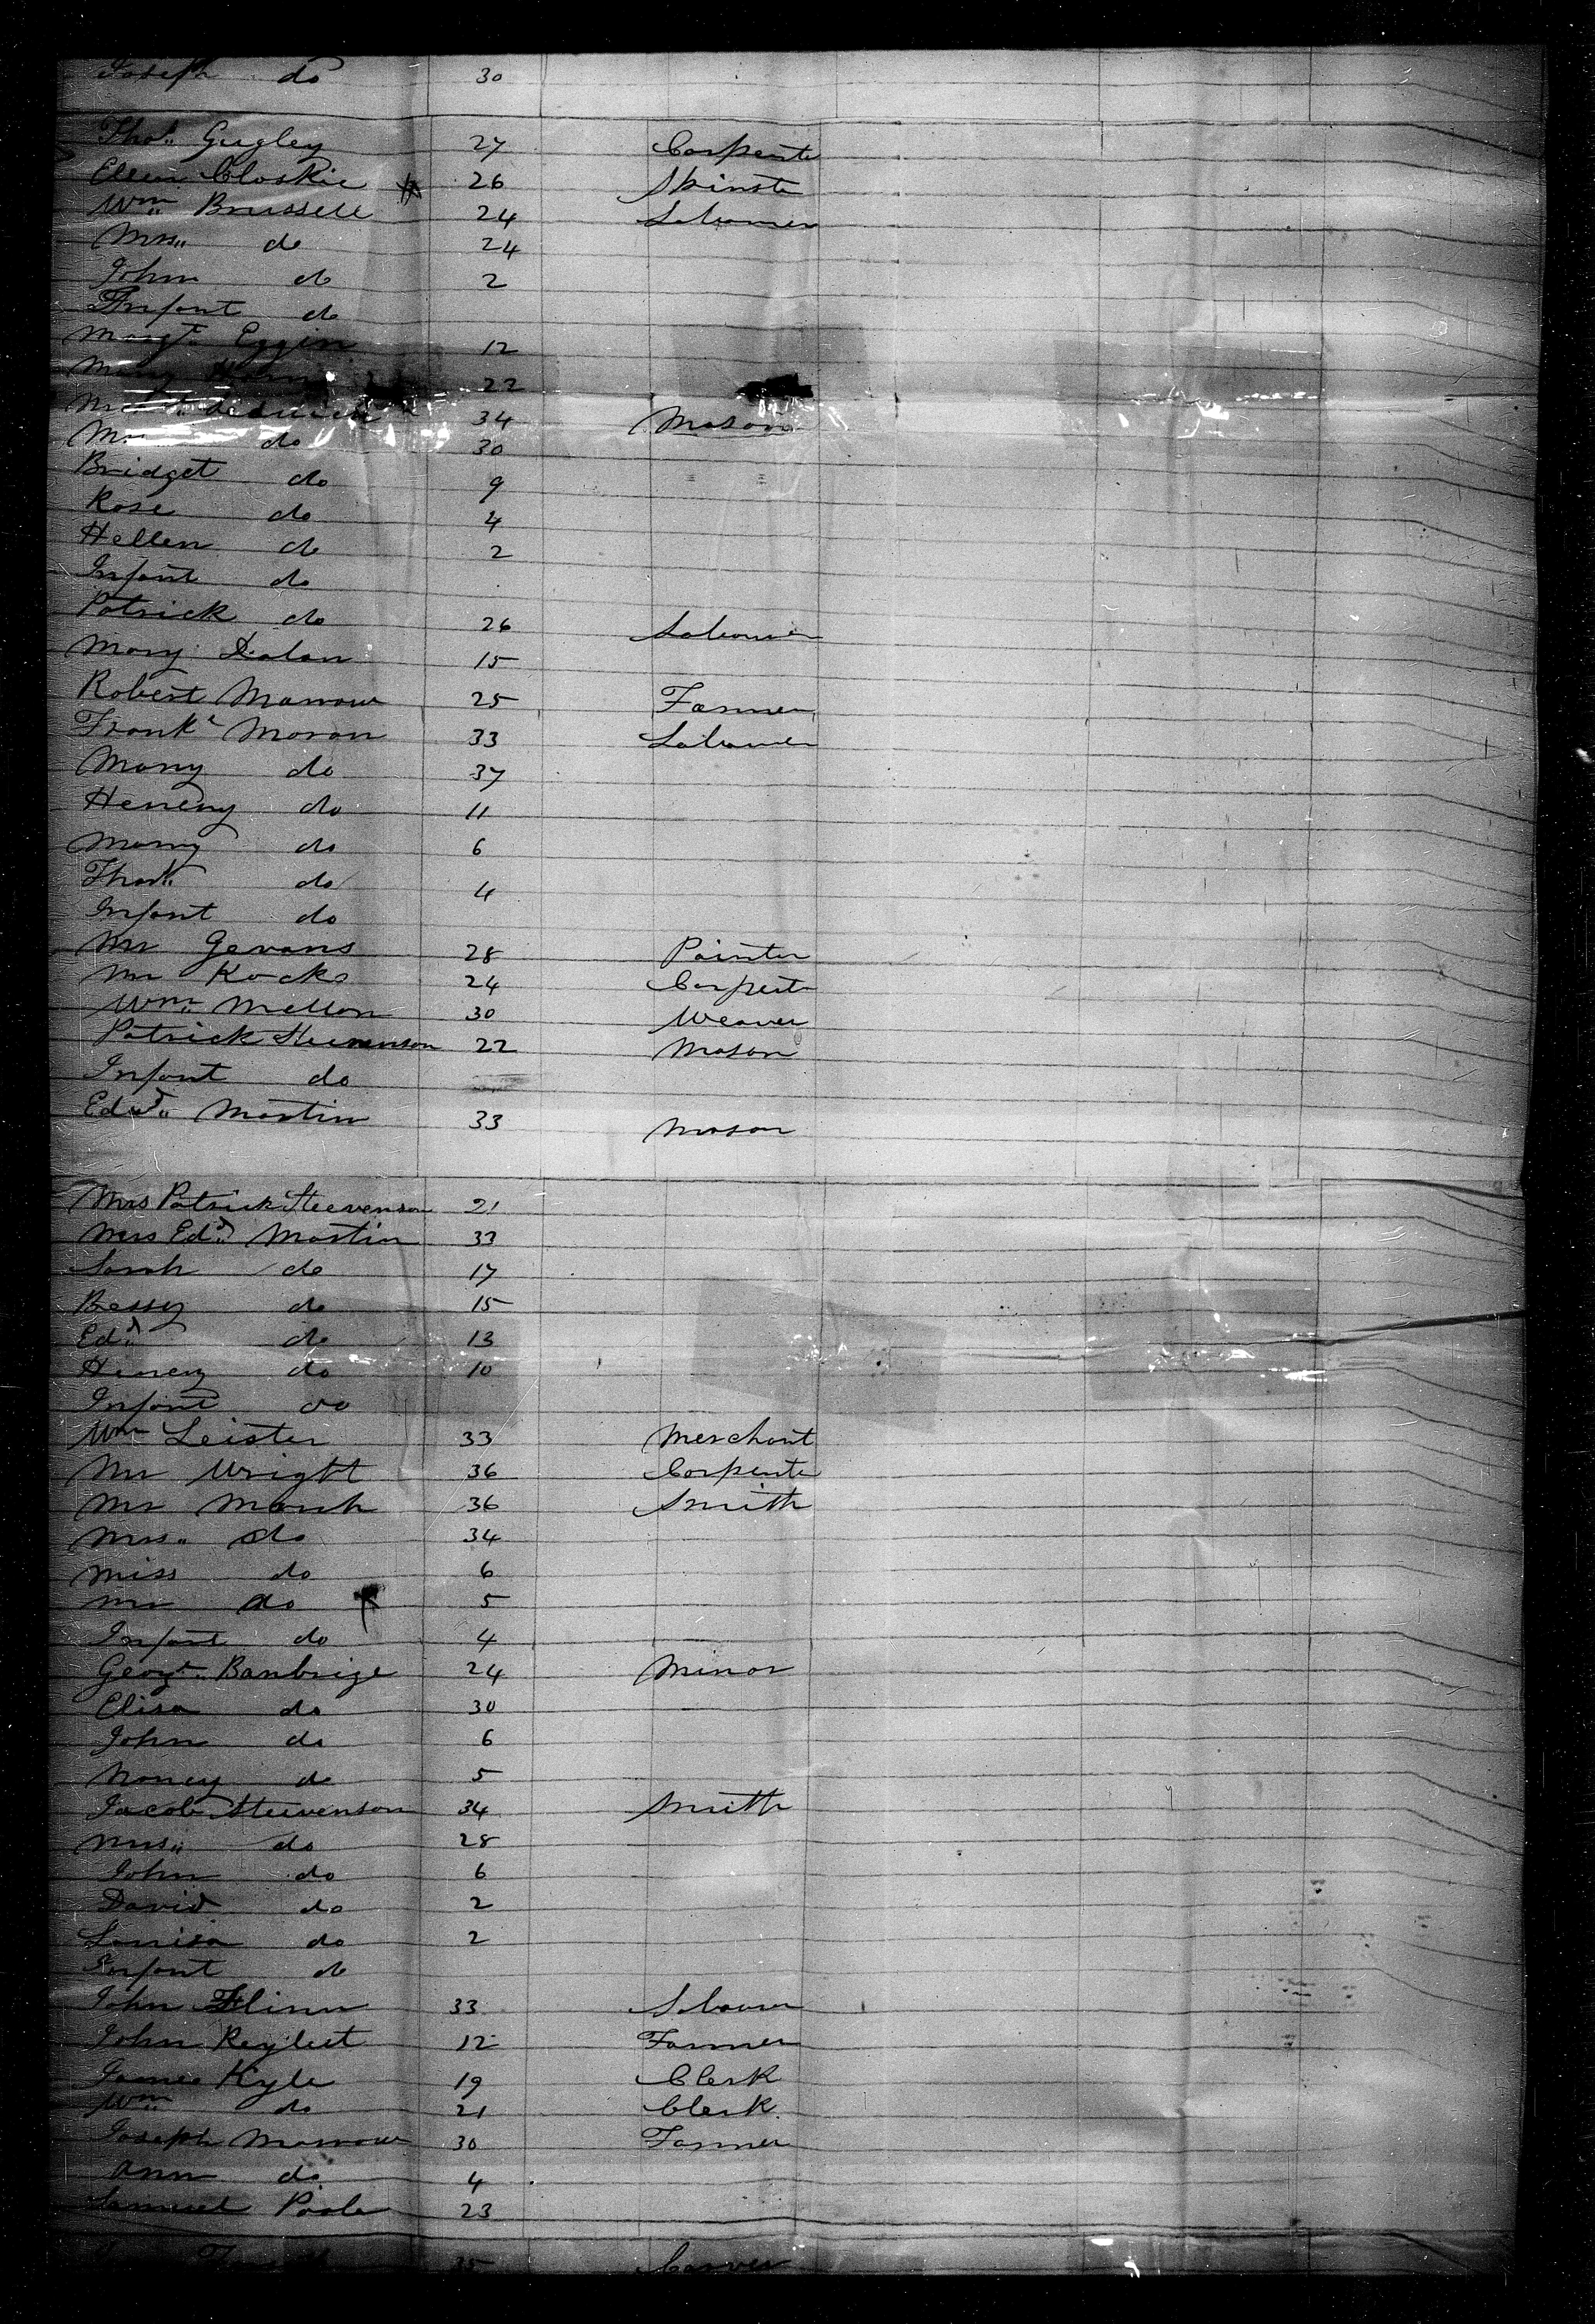 Joseph do 30
Thos. Gugley 27 Carpente
Ellen Closkie 26 Spinste
Wm. Brussell 24 Labourer
Mrs. do 24
John do 2
Infant do
Margt. Eggin 12
Mary 22
34 Mason
Mrs do 30
Bridget do 9
Rose do 4
Hellen do 2
Infant do
Patrick do 26 Labourer
Mary Dolan 15
Robert Marrow 25 Farmer
Frank Moran 33 Labourer
Mary do 37
Henery do 11
Mary do 6
Thos. do 4
Infant do
Mr Gevans 28 Painter
Mr Rocks 24 Carpent
Wm. Mellon 30 Weaver
Patrick Steevenson 22 Mason
Infant do
Edwd. Martin 33 Mason
Mrs Patrick Steevenson 21
Mrs Edd. Martin 33
Sarah do 17
Bessy do 15
Edd. do 13
Henery do 10
Infant do
Wm Leister 33 Merchant
Mr Wright 36 Carpente
Mr Marsh 36 Smith
Mrs. do 34
Miss do 6
Mr do 5
Infant do 4
Geogt. Banbrige 24 Minor
Elisa do 30
John do 6
Nancy do 5
Jacob Steevenson 34 Smith
Mrs. do 28
John do 6
David do 2
Louisa do 2
Infant do
John Flinn 33 Labourer
John 12 Farmer
James Kyle 19 Clerk
Wm. do 21 Clerk
Joseph Marrow 30 Farmer
Ann do 4
Samuel Poole 23
35 Carver